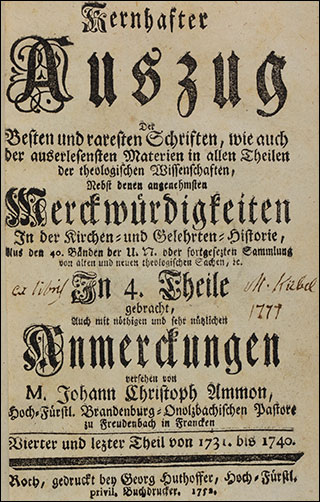 Kernhafter
Auszug
Der
Besten und raresten Schriften, wie auch
der auserlesensten Materien in allen Theilen
der theologischen Wissenschaften,
Nebst denen angenehmsten
Merckwürdigkeiten
In der Kirchen- und Gelehrten-Historie,
Aus den 40. Bänden der U. N. oder fortgesezten Sammlung
von alten und neuen theologischen Sachen, ꝛc.
ex libris
In 4. Theile
gebracht,
Auch mit nöthigen und sehr nützlichen
Anmerckungen
versehen von
M. Johann Christoph Ammon,
Hoch-Fürstl. Brandenburg-Onolzbachischen Pastore
zu Freudenbach in Francken
Vierter und lezter Theil von 1731. bis 1740.
Roth, gedruckt bey Georg Huthoffer, Hoch-Fürstl.
privil. Buchdrucker. 1752.